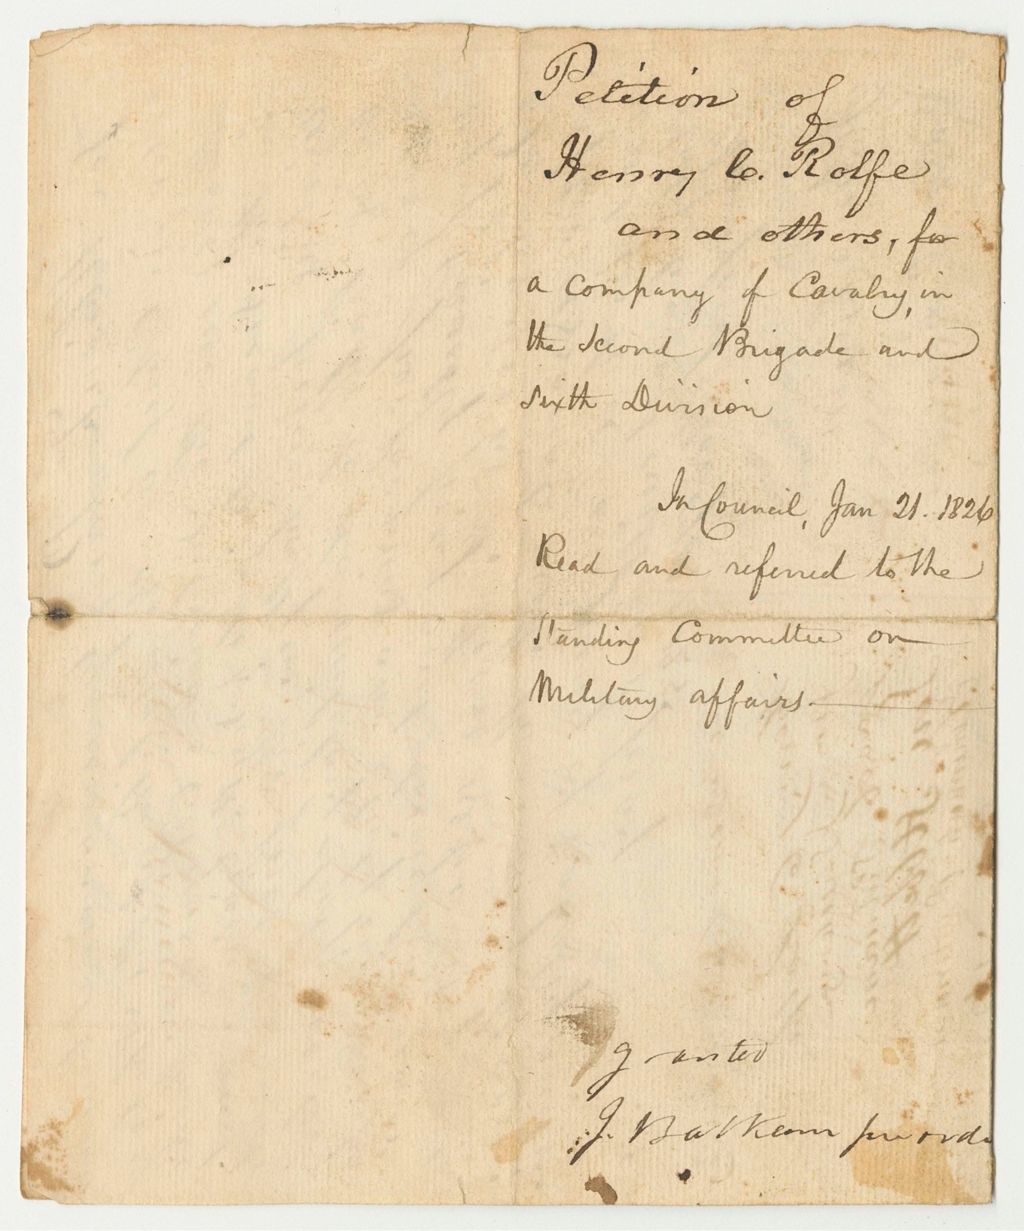 Petition of
Henry C. Rolfe
and others, for
a company of Cavalry, in
the Second Brigade and
Sixth Division
In Council, Jan 21. 1826
Read and referred to the
Standing Committee on
Military affairs.
granted
J. Balkam per order